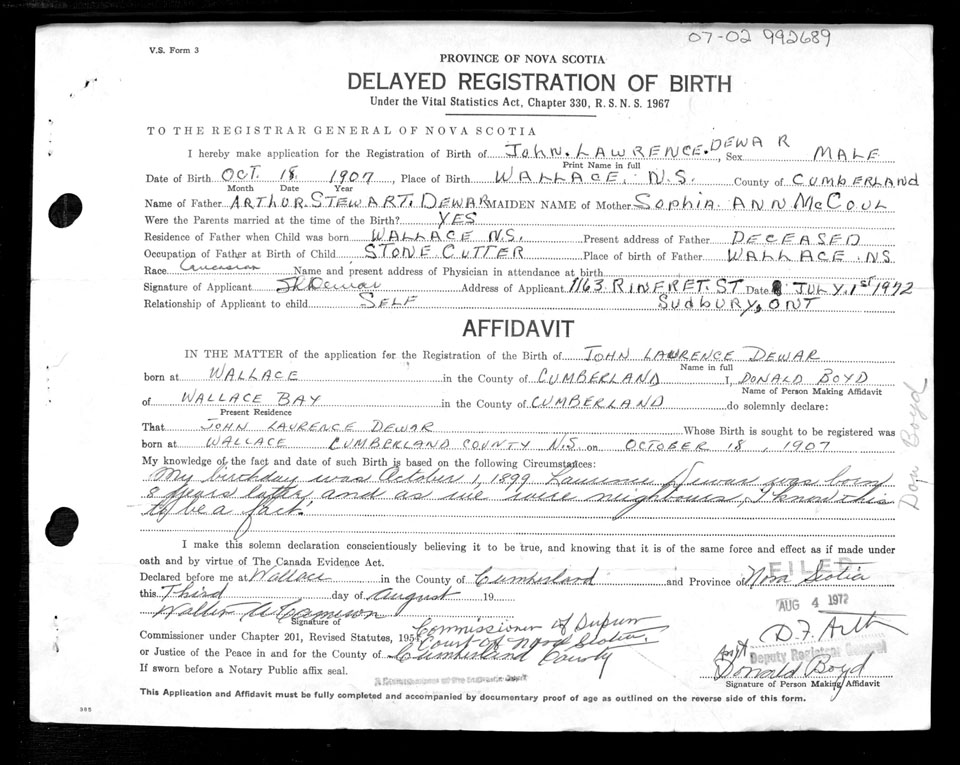 07-02 992689
V.S. Form 3
PROVINCE OF NOVA SCOTIA
DELAYED REGISTRATION OF BIRTH
Under the Vital Statistics Act, Chapter 330, R.S.N.S. 1967
TO THE REGISTRAR GENERAL OF NOVA SCOTIA
I hereby make application for the Registration of Birth of JOHN. LAWRENCE. DEWAR, Sex MALE
Print Name in full
Date of Birth OCT. 18 1907, Place of Birth WALLACE. N.S. County of CUMBERLAND
Month Date Year
Name of Father ARTHUR. STEWART. DEWAR MAIDEN NAME of Mother SOPHIA. ANN McCOUL
Were the Parents married at the time of the Birth? YES
Residence of Father when Child was born WALLACE N.S. Present address of Father DECEASED
Occupation of Father at Birth of Child STONE CUTTER Place of birth of Father WALLACE N.S.
Race Caucasian Name and present address of Physician in attendance at birth
Signature of Applicant Dewar Address of Applicant 1163 RINFRET. ST. Date JULY 1st 1972
Relationship of Applicant to child SELF SUDBURY, ONT
AFFIDAVIT
IN THE MATTER of the application for the Registration of the Birth of JOHN LAWRENCE DEWAR
Name in full
born at WALLACE in the County of CUMBERLAND I, DONALD BOYD
Name of Person Making Affidavit
of WALLACE BAY in the County of CUMBERLAND do solemnly declare:
Present Residence
That JOHN LAURENCE DEWAR Whose Birth is sought to be registered was
born at WALLACE CUMBERLAND COUNTY N.S. on OCTOBER 18, 1907
My knowledge of the fact and date of such Birth is based on the following Circumstances:
My birthday was October 1, 1899 Laurence Dewar was born
8 years later, and as we were neighbours, I know this
to be a fact.
Don Boyd
I make this solemn declaration conscientiously believing it to be true, and knowing that it is of the same force and effect as if made under
oath and by virtue of The Canada Evidence Act.
Declared before me at Wallace in the County of Cumberland and Province of Nova Scotia
FILED
this Third day of August 19
AUG 4 1972
Walter Cameron
Signature of
Commissioner of Supreme
Commissioner under Chapter 201, Revised Statutes, 1954 Court of Nova Scotia,
or Justice of the Peace in and for the County of Cumberland County
D.F.
Deputy Registrar General
If sworn before a Notary Public affix seal.
Donald Boyd
Signature of Person Making Affidavit
A Commissioner of the Supreme Court
This Application and Affidavit must be fully completed and accompanied by documentary proof of age as outlined on the reverse side of this form.